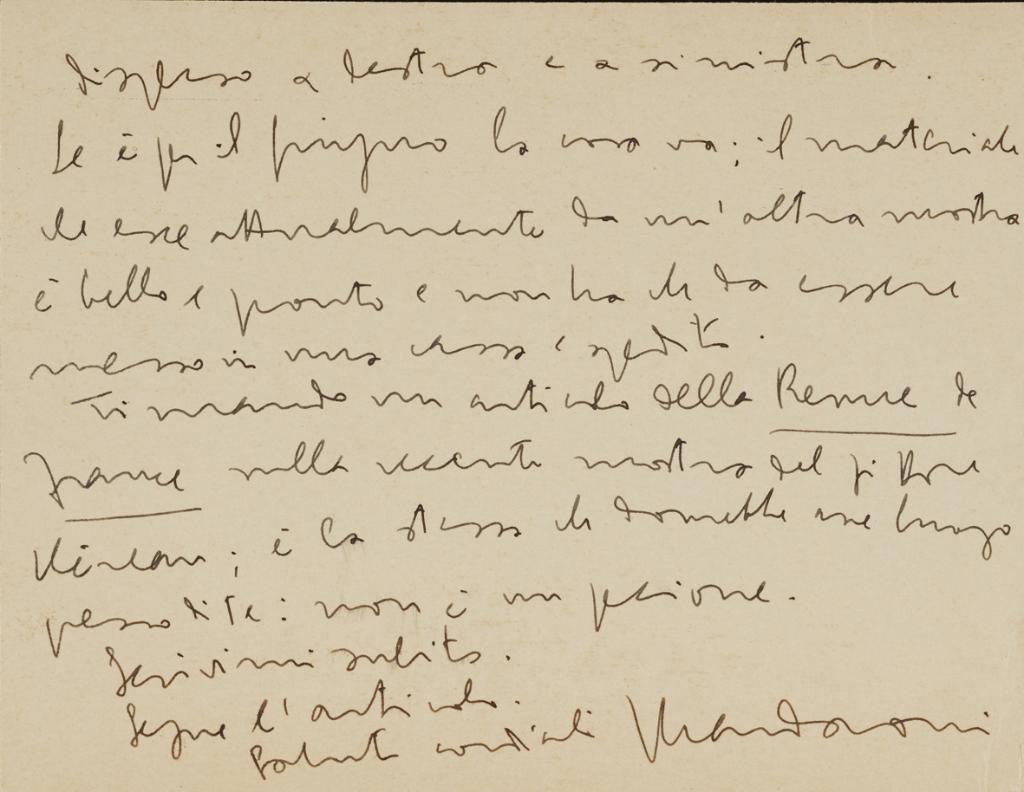 disperso a destra e a sinistra.
Se è per il giugno la cosa va; il materiale
che esce attualmente da un'altra mostra
è bello e pronto e non ha che da essere
messo in una cassa e spedito.
Ti mando un articolo della Revue de
France sulla recente mostra del pittore
; è la stessa che dovrebbe aver luogo
presso di te: non è un pecione.
Scrivimi subito.
Segue l'articolo.
Saluti cordiali